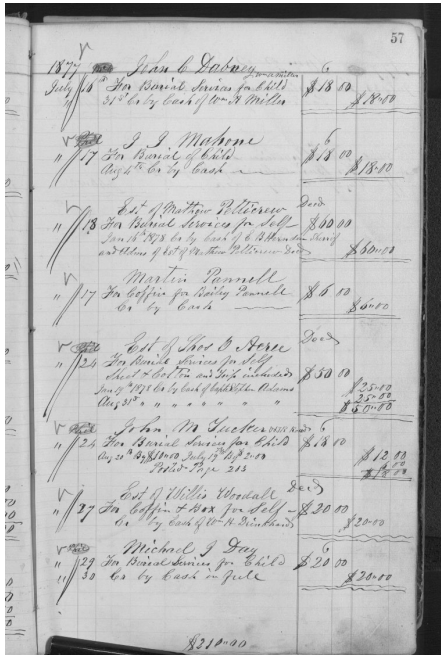 57
1877 John C Dabney 6
July 16th For Burial Services for Child $18 00
" 31st Cr by Cash of Wm H Miller $18.00
Paid J J Mahone 6
" 17 For Burial of Child $18 00
Aug 4th Cr by Cash $18.00
Est of Mathew Pettierew Decd
" 18 For Burial Services for Self $60 00
Jan 16th 1878 Cr by Cash of C B Sheriff
and Admr of Est of Mathew Pettierew Decd $60.00
Martin Pannell
" 17 For Coffin for Bailey Pannell $6 00
Cr by Cash $6.00
Est of Thos Acree Decd
" 24 For Burial Services for Self $50 00
and Trip included
Jan 17th 1878 Cr by Cash of $25.00
Aug 31st " " " " " " " 25.00
$50.00
John M Tucker 6
" 24 For Burial Services for Child $18 00
Aug 20th By $10.00 July $12.00
Posted Page 203
Est of Willis Woodall Decd
" 27 For Coffin & Box for Self $20 00
Cr by Cash of Wm H $20.00
Michael J Day 6
" 29 For Burial Services for Child $20 00
" 30 Cr by Cash in full $20.00
$210.00